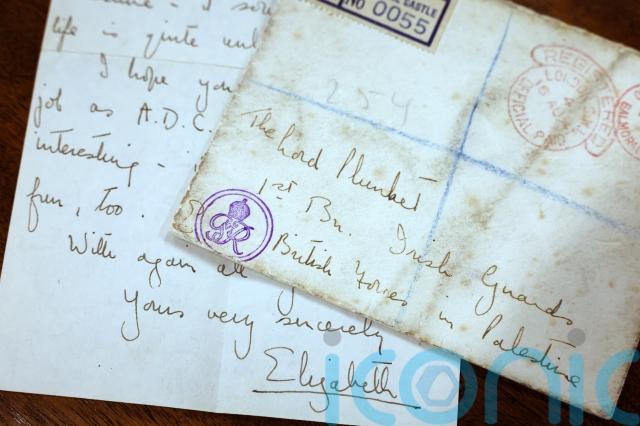 life is quite
I hope you
job as A.D.C.
interesting -
fun, too.
With again all
Yours very sincerely
Elizabeth
CASTLE
No 0055
254
The Lord Plunket
1st Bn. Irish Guards
British Forces in Palestine
GR
REGISTERED
OFFICIAL PAID
BALMORAL
iconic